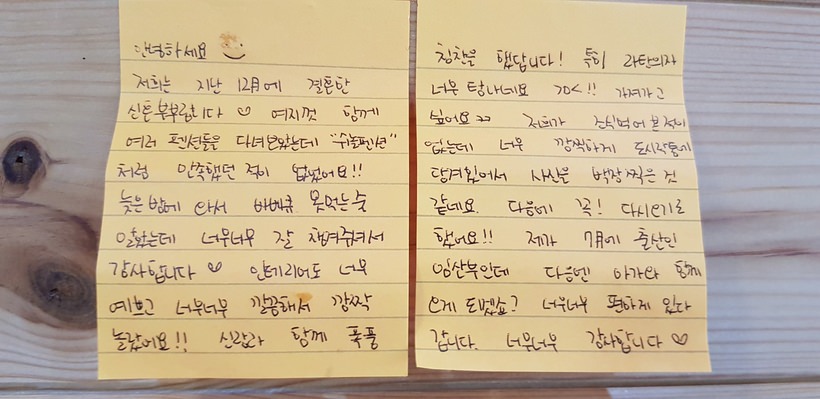 안녕하세요
저희는 지난 12月에 결혼한
신혼부부랍니다 ♡ 여지껏 함께
여러 펜션들을 다녀보았는데 "쉬놀펜션"
처럼 만족했던 적이 없었어요!!
늦은 밤에 와서 바베큐 못먹는줄
알았는데 너무너무 잘 챙겨주셔서
감사합니다 ♡ 인테리어도 너무
예쁘고 너무너무 깔끔해서 깜짝
놀랐어요!! 신랑과 함께 폭풍
칭찬을 했답니다! 특히 라탄의자
너무 탐나네요 >0<!! 가져가고
싶어요 저희가 조식먹어 본 적이
없는데 너무 깜찍하게 도시락통에
담겨있어서 사진을 백장 찍은 것
같네요. 다음에 꼭! 다시오기로
했어요!! 제가 7月에 출산인
임산부인데 다음엔 아가와 함께
오게 되겠죠? 너무너무 편하게 있다
갑니다. 너무너무 감사합니다 ♡